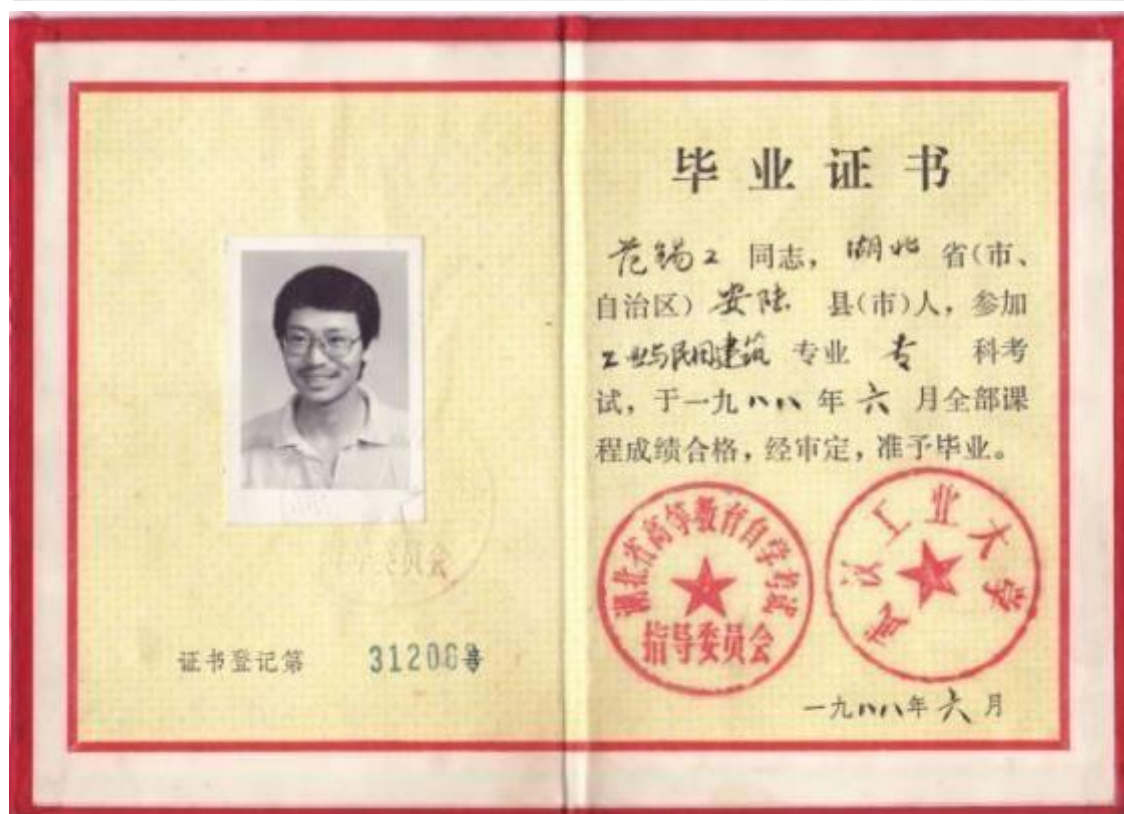 毕业证书
范锡工 同志，湖北 省(市、
自治区) 安陆 县(市)人，参加
工业与民用建筑 专业 专 科考
试，于一九八八年六月全部课
程成绩合格，经审定，准予毕业。
湖北省高等教育自学考试
指导委员会
武汉工业大学
一九八八年六月
委员会
证书登记第 号